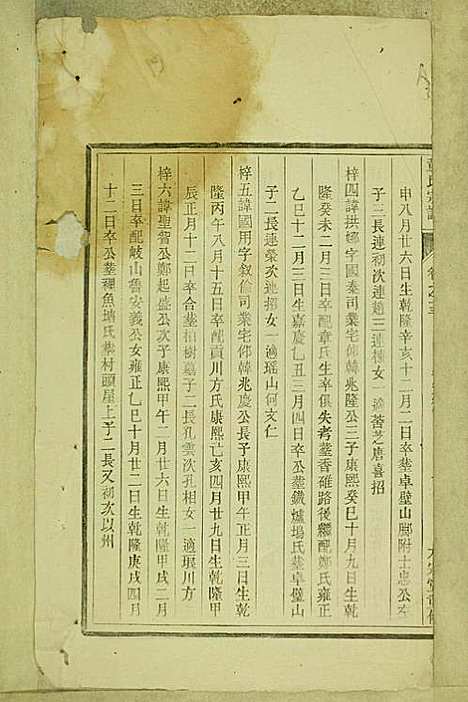 申八月廿六日生乾隆辛亥十二月二日卒塟卓壁山脚附士忠公左
子三長連初次連趙三連棟女一適蓍芝唐喜招
梓四諱拱娜字國泰司業宅仰韓兆隆公三子康熙癸巳十月九日生乾
隆癸未二月三日卒配章氏生卒俱失考塟香碓路後繼配鄭氏雍正
乙巳十二月三日生嘉慶乙丑三月四日卒公塟鐵爐塢氏塟卓壁山
子二長連榮次連招女一適瑶山何支仁
梓五諱國用字叙倫司業宅仰韓兆慶公長子康熙甲午正月三日生乾
隆丙午八月十五日卒配貢川方氏康熙己亥四月廿九日生乾隆甲
辰正月十二日卒合塟栢樹嘉子二長孔雲次孔相女一適琅川方
梓六諱聖智公鄭起盛公次子康熙甲午二月廿六日生乾隆甲戌二月
三日卒配岐山魯安義公女雍正乙巳十月廿二日生乾隆庚戌四月
十二日卒公塟裡魚塘氏塟村頭屋上子二長又初次以州